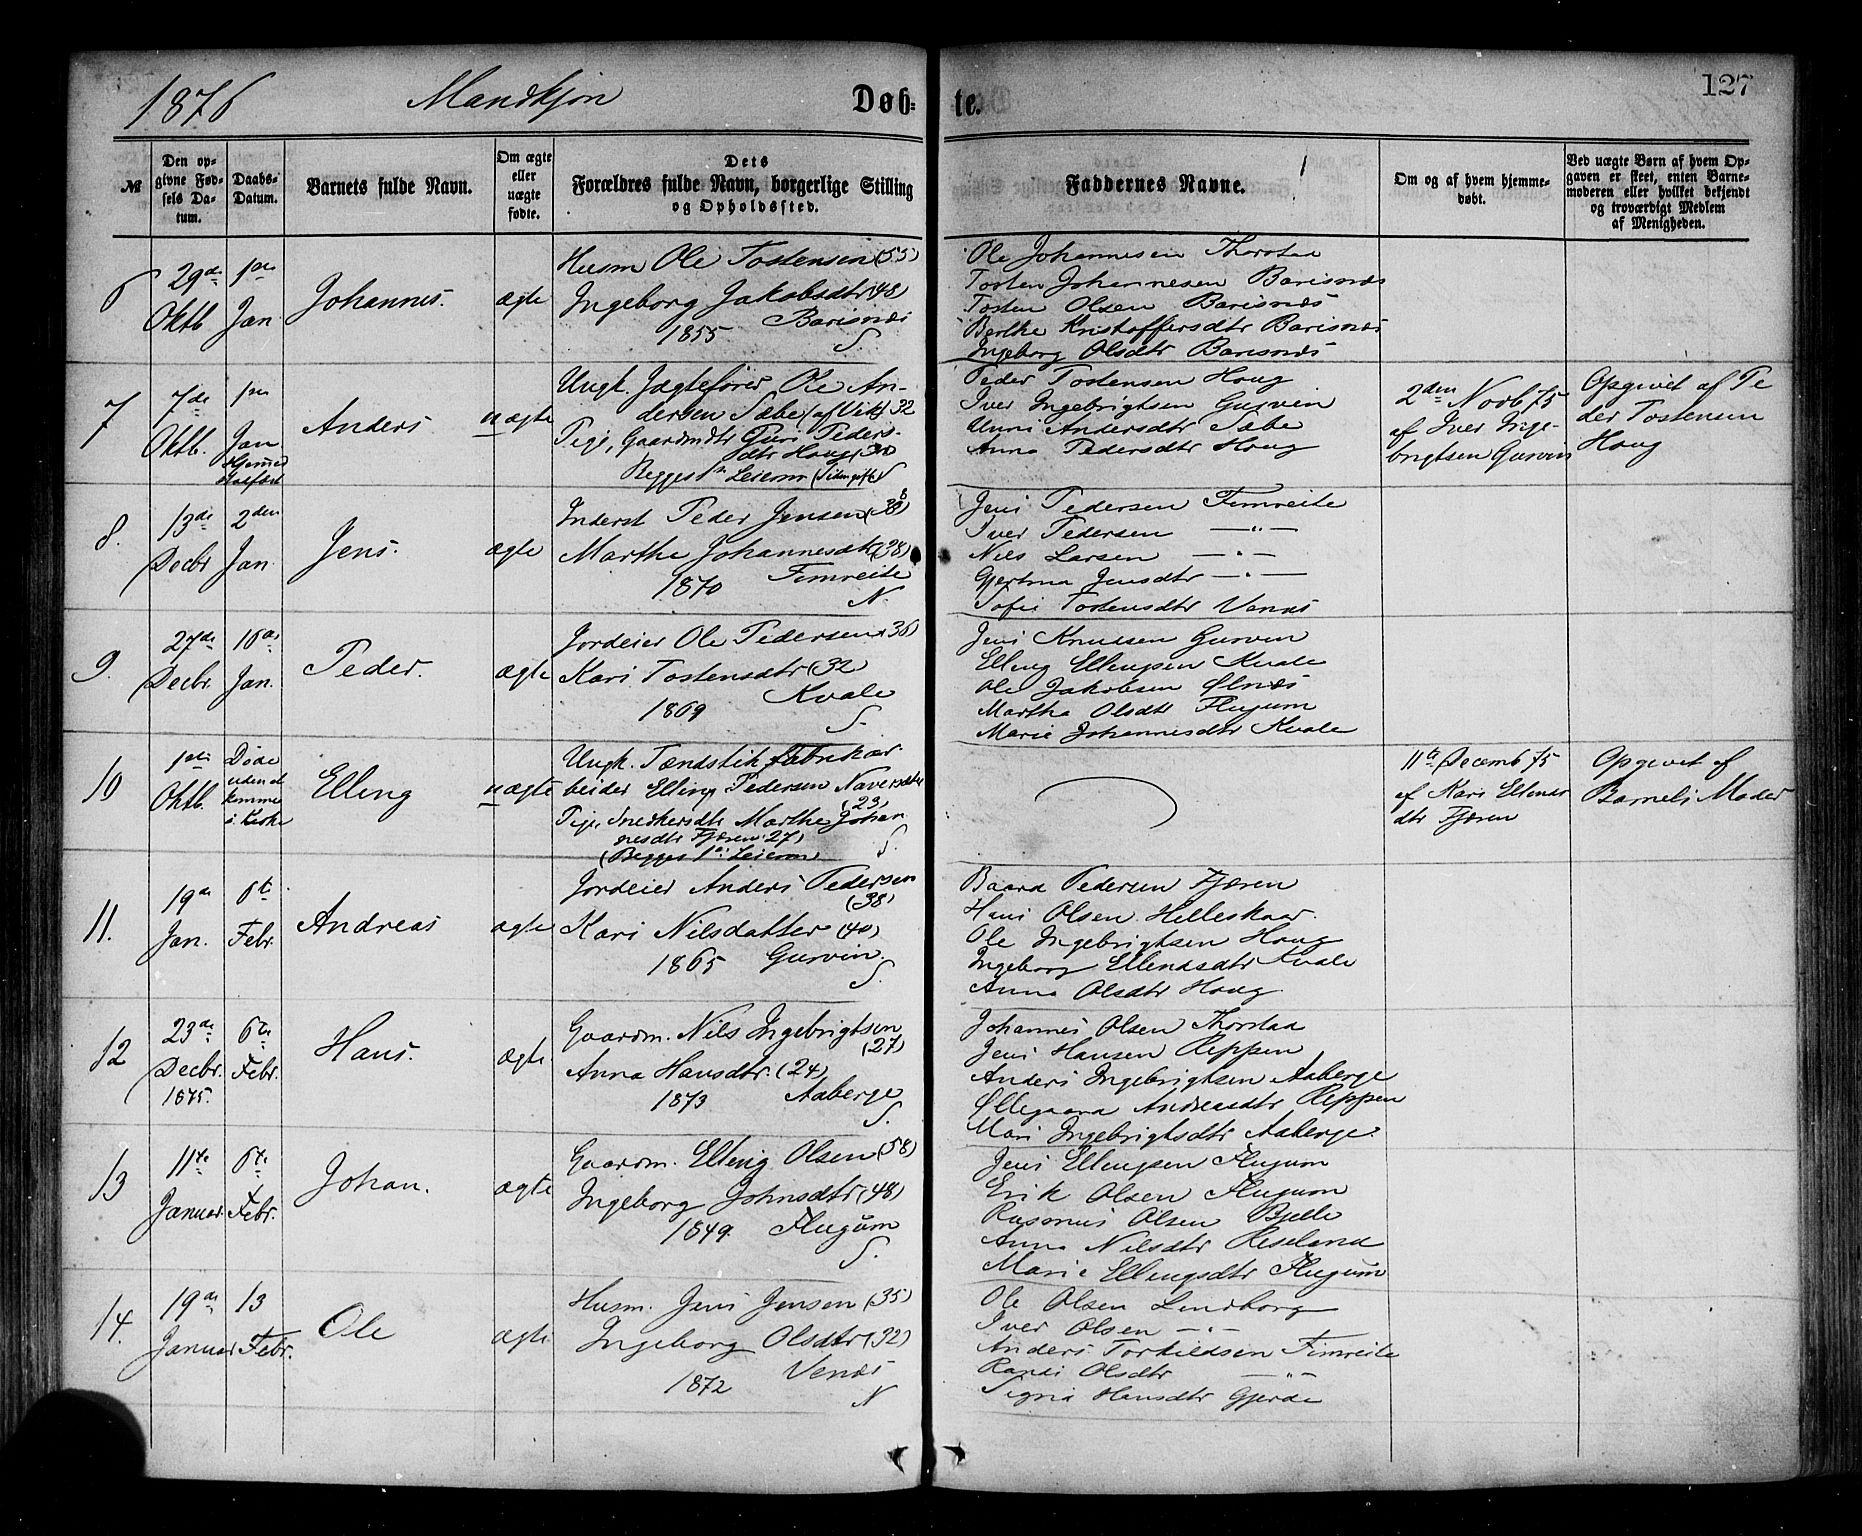 1876 Mandkjøn Døb- te. 127
№
Den op-
givne Fød-
sels Da-
tum.
Daabs-
Datum.
Barnets fulde Navn.
Om ægte
eller
uægte
fødte.
Dets
Forældres fulde Navn, borgerlige Stilling
og Opholdssted.
Faddernes Navne.
Om og af hvem hjemme-
døbt.
Ved uægte Børn af hvem Op-
gaven er skeet, enten Barne-
moderen eller hvilket bekjendt
og troværdigt Medlem
af Menigheden.
6
29de
Oktb.
1ste
Jan
Johannes.
ægte
Husm Ole Tostensen (55)
Ingeborg Jakobsdtr (48)
1855 Barisnæs
S.
Ole Johannesen Thorstad
Tosten Johannesen Barisnæs
Tosten Olsen Barisnæs
Berthe Kristoffersdtr Barisnæs
Ingeborg Olsdtr Barisnæs
7
7de
Oktb.
1ste
Jan
Hjemmed
Stadfæst
Anders
uægte
Ungk. Jægtefører Ole An-
dersen Sæbe (af Vik) 32
Pige, Gaardmdtr Guri Peders-
dtr Houg, 30
Begges 1ste Leierm
S
Peder Tostensen Houg
Iver Ingebrigtsen Gurvin
Unni Andersdtr Sæbe
Anna Pedersdtr Houg
2den Novb 75
af Iver Inge-
brigtsen Gurvin
Opgivet af Pe
der Tostensen
Houg
8.
13de
Decbr
2den
Jan
Jens.
ægte
Inderst Peder Jensen (38)
Marthe Johannesdtr (38)
1870 Fimreite
N.
Jens Pedersen Fimreite
Iver Pedersen —"—
Nils Larsen —"—
Gjertrud Jensdtr —"—
Sofie Tostensdtr Venæs
9.
27de
Decbr.
16de
Jan.
Peder.
ægte
Jordeier Ole Pedersen (36)
Kari Tostensdtr (32
1869 Kvale
S.
Jens Knutsen Gurvin
Elling Ellingsen Kvale
Ole Jakobsen Ølnæs
Martha Olsdtr Flugum
Marie Johannesdtr Kvale
10
1ste
Oktb.
Døde
uden at
komme
i. Kirke
Elling
uægte
Ungk. Tændstikfabrikar
beider Elling Pedersen Naversæte
(23)
Pige, Snedkersdtr Marthe Johan
nesdtr Fjæren 27)
(Begges 1ste Leierm)
S.
11te Decemb 75
af Kari Ellends
dtr Fjæren
Opgivet af
Barnets Moder
11.
19de
Jan.
6te
Febr.
Andreas
ægte
Jordeier Anders Pedersen
(38)
Kari Nilsdatter (40)
1865 Gurvin
S.
Baard Pedersen Fjæren
Hans Olsen Helleskaar.
Ole Ingebrigtsen Houg
Ingeborg Ellendsdtr Kvale
Anna Olsdtr Houg
12
23de
Decbr.
1875.
6te
Febr.
Hans.
ægte
Gaardm. Nils Ingebrigtsen
(27)
Anna Hansdtr. (24)
1873 Aaberge
S.
Johannes Olsen Thorstad
Jens Hansen Reppen
Anders Ingebrigtsen Aaberge
Ellegaard Andreasdtr Reppen
Mari Ingebrigtsdtr Aaberge.
13
11te
Januar.
6te
Febr.
Johan.
ægte
Gaardm. Elling Olsen (58)
Ingeborg Johnsdtr (48)
1849 Flugum
S.
Jens Ellingsen Flugum
Erik Olsen Flugum
Rasmus Olsen Bjelle
Anna Nilsdtr Reseland
Marie Ellingsdtr Flugum
14.
19de
Januar
13
Febr.
Ole
ægte
Husm. Jens Jensen (35)
Ingeborg Olsdtr (32)
Venæs
1872
N
Ole Olsen Lindborg
Iver Olsen —"—
Anders Torkildsen Fimreite
Randi Olsdtr —"—
Signa Hansdtr Gjerde